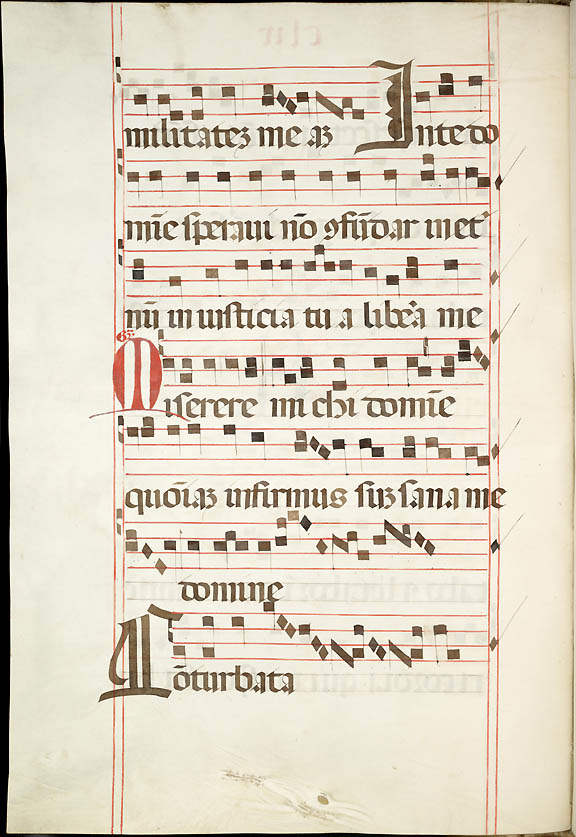 militatez me az In te do
mīe speraui nō ꝯfūdar in et͛
nū in iusticia tu a libera me
Gͬ
Miserere mi chi domīe
quoīaz infirmus suz sana me
domine
Cōturbata